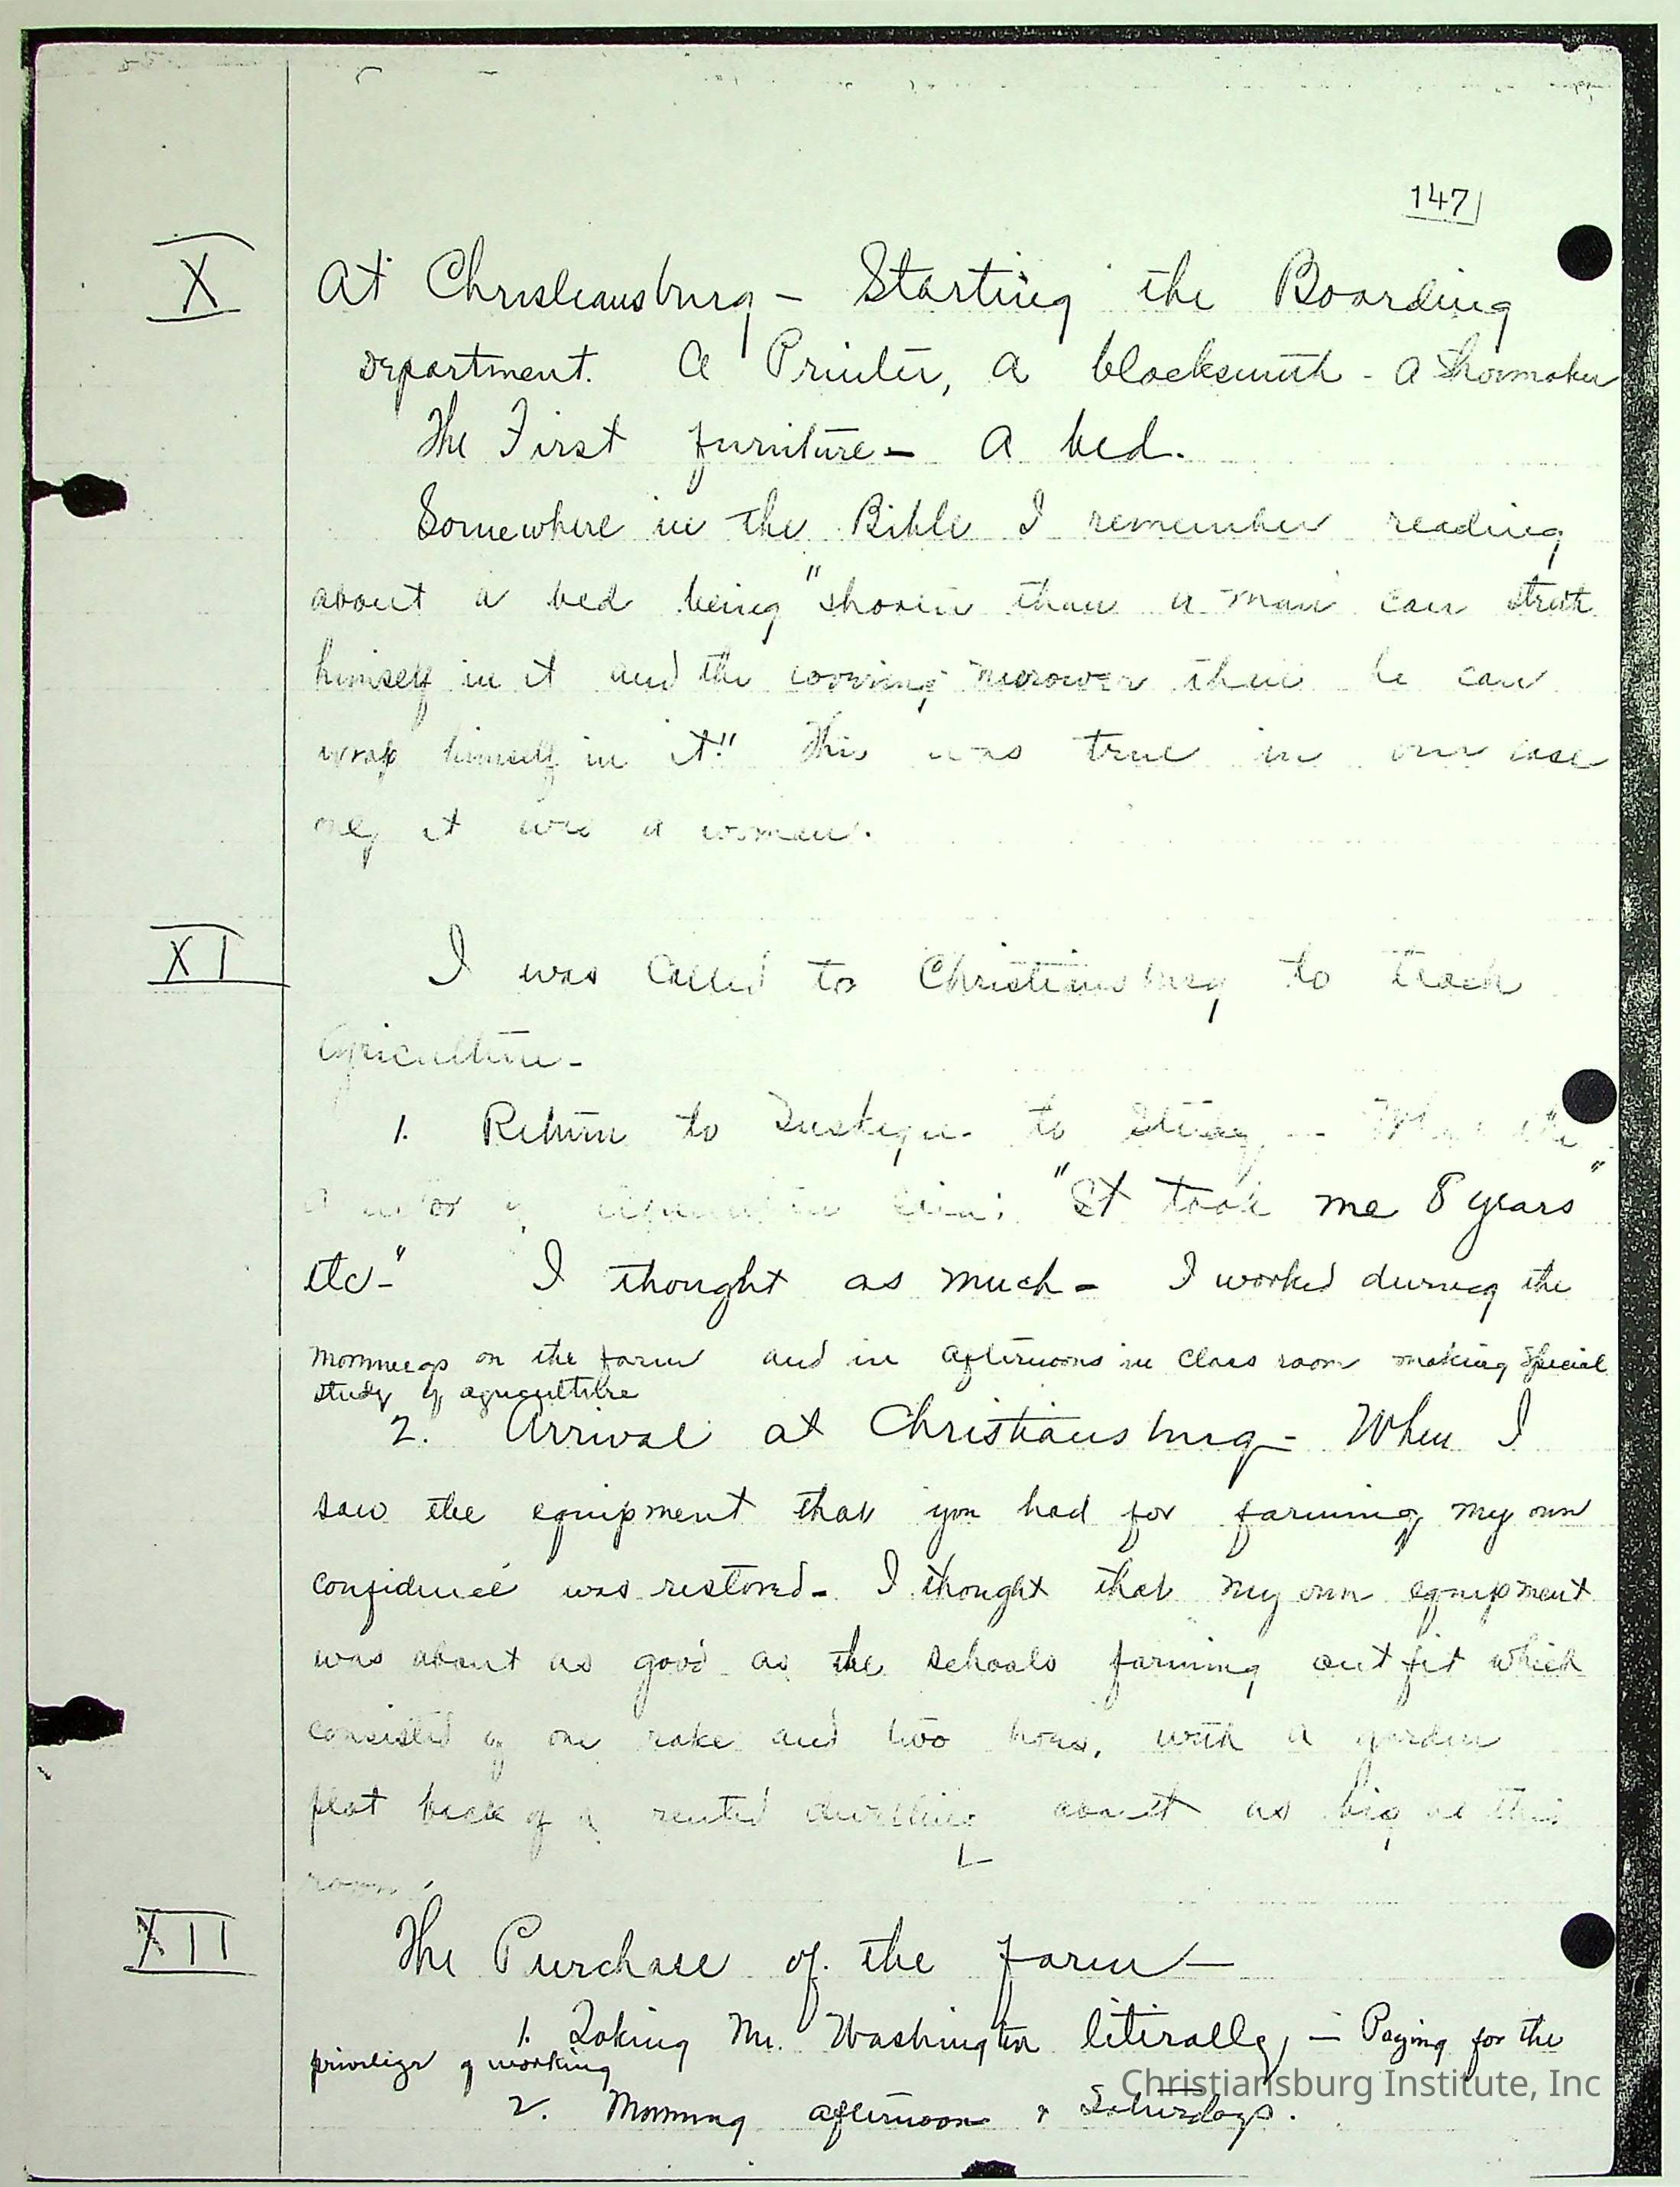 147
X
At Christiansburg - Starting the Boarding
department. A Printer, a blacksmith - a shoemaker
The First furniture - a bed.
Somewhere in the Bible I remember reading
about a bed being "shorter than a man can
himself in it and the covering narrower than he can
wrap himself in it." This was true in our case
only it was a woman.
XI
I was called to Christiansburg to teach
Agriculture -
1. Return to Tuskegee to study - the
"It took me 8 years"
etc-" I thought as much - I worked during the
mornings on the farm and in afternoons in class room making special
study of agriculture
2. Arrival at Christiansburg - When I
saw the equipment that you had for farming my own
confidence was restored - I thought that my own equipment
was about as good as the schools farming outfit which
consisted of one rake and two hoes, with a garden
plot back of a rented dwelling about as big as this
room.
XII
The Purchase of the farm -
1. Taking Mr. Washington literally, - Paying for the
privilege of working
2. Morning afternoons & Saturdays.
Christiansburg Institute, Inc